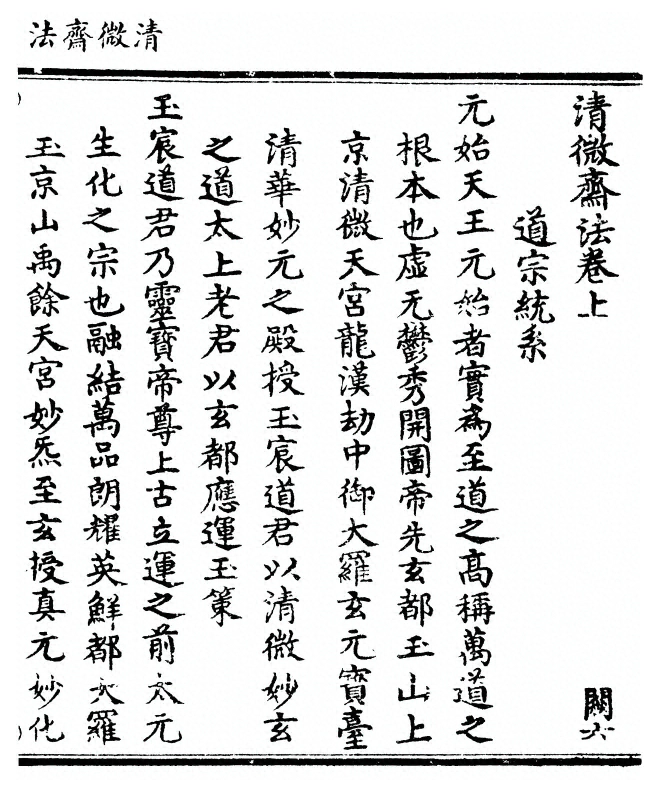 清微齋法
清微齋法卷上
闕六
道宗統系
元始天王元始者實為至道之高稱萬道之
根本也虛无鬱秀開圖帝先玄都玉山上
京清微天宮龍漢劫中御大羅玄元寶臺
清華妙元之殿授玉宸道君以清微妙玄
之道太上老君以玄都應運玉策
玉宸道君乃靈寶帝尊上古立運之前太元
生化之宗也融結萬品朗耀英鮮都大羅
玉京山禹餘天宮妙炁至玄授真元妙化